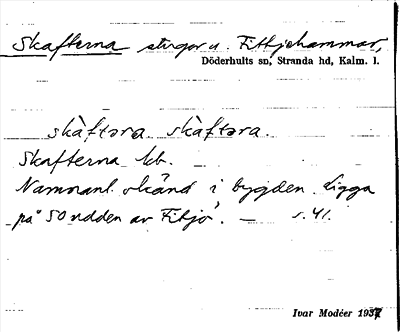 Skafterna stugor u. Fittjehammar,
Döderhults sn, Stranda hd, Kalm. l.
skàftəra. skàftəra.
Skafterna kb.
Namnanl. okänd i bygden. Ligga
på SO udden av Fittjö. – s. 41.
Ivar Modéer 1937